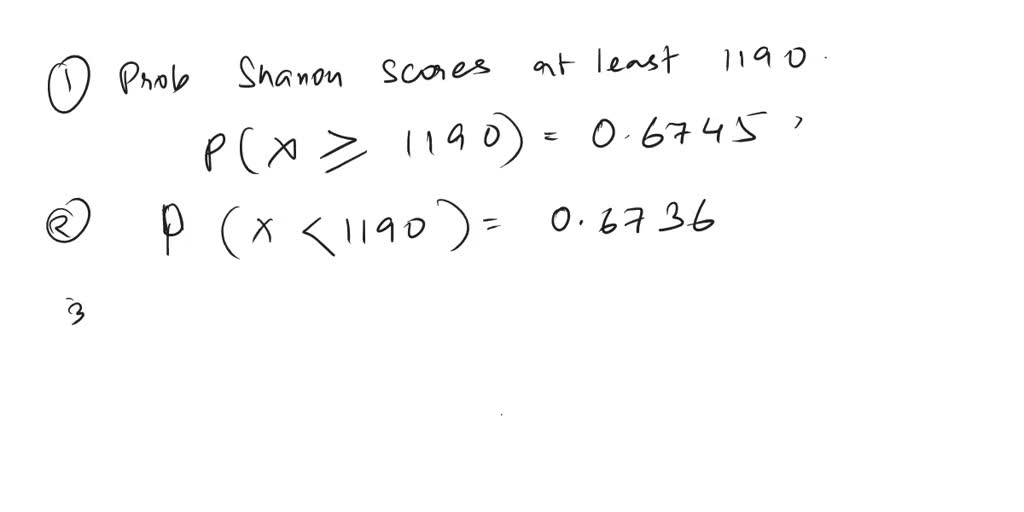 ① Prob Shanon scores at least 1190.
P(x ⩾ 1190) = 0.6745,
② P (x < 1190) = 0.6736
3